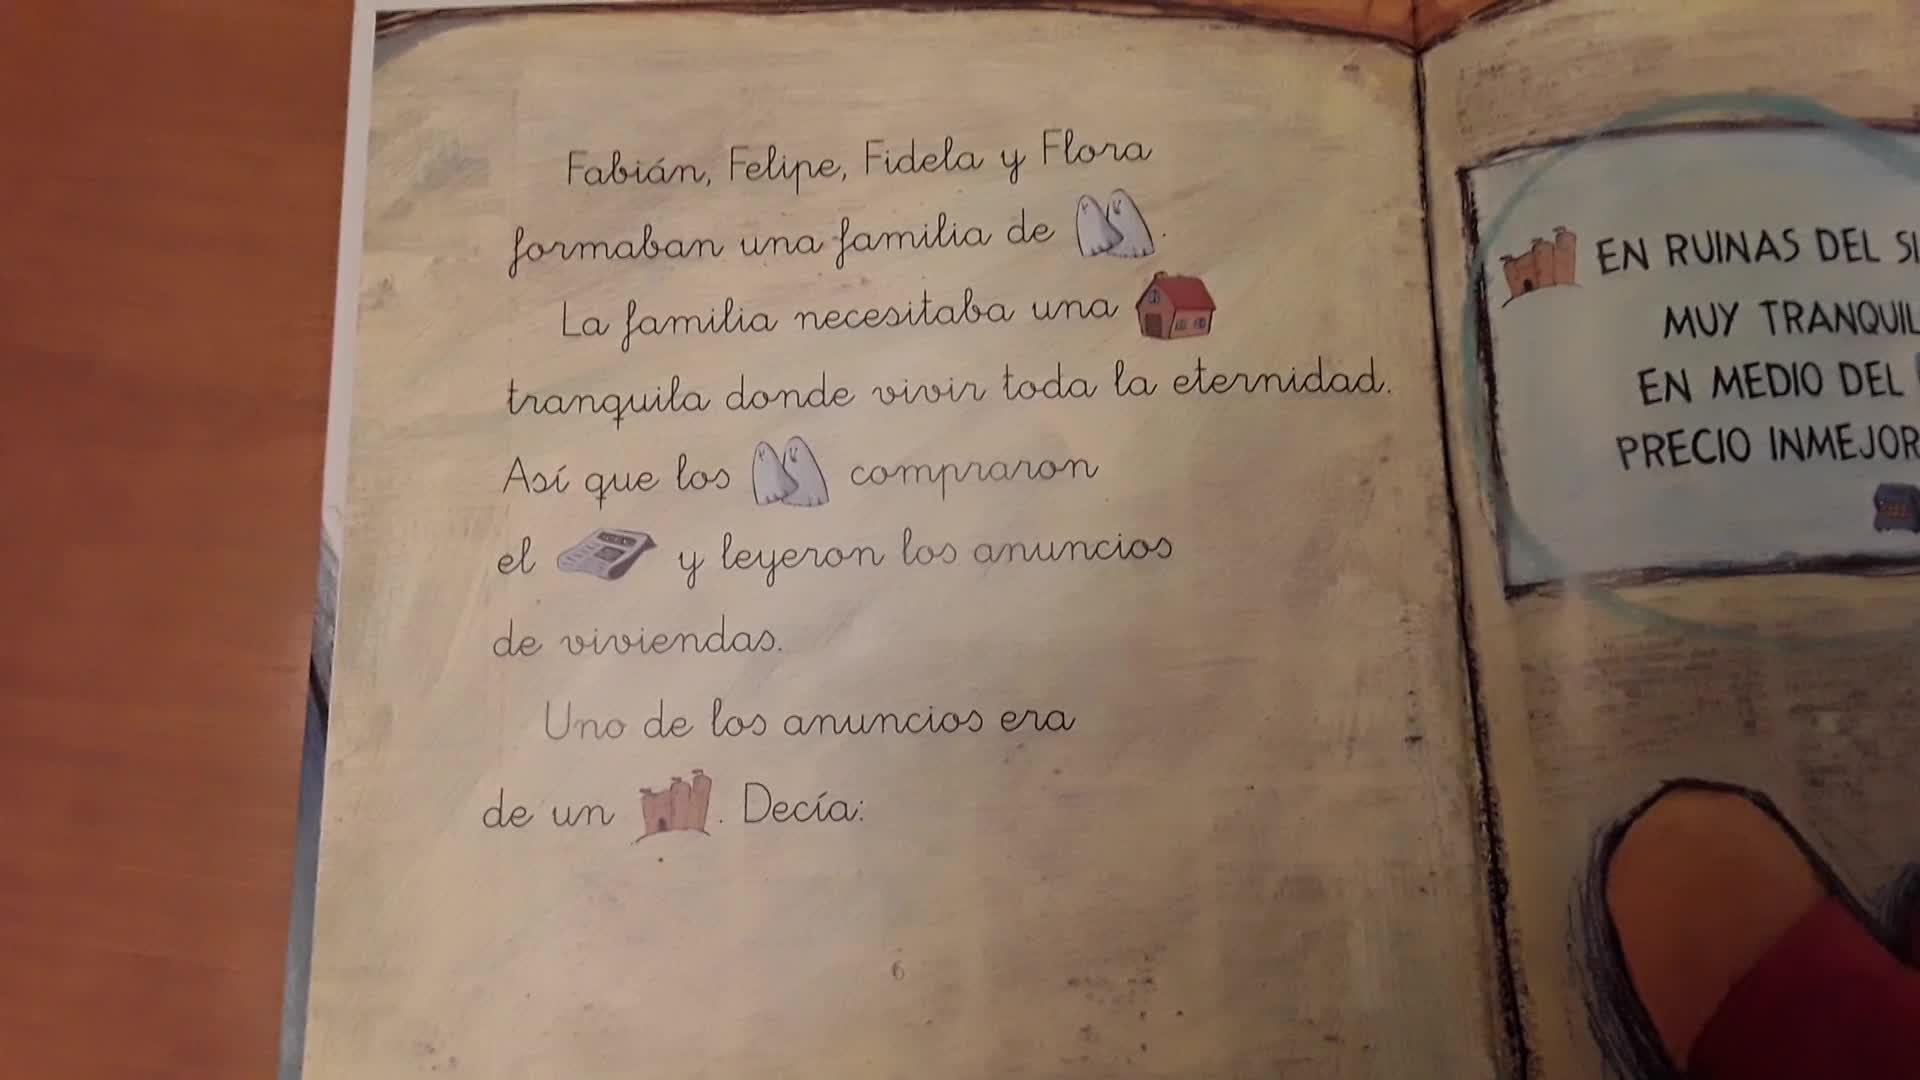 Fabián, Felipe, Fidela y Flora
formaban una familia de .
La familia necesitaba una
tranquila donde vivir toda la eternidad.
Así que los compraron
el y leyeron los anuncios
de viviendas.
Uno de los anuncios era
de un . Decía:
6
EN RUINAS DEL
MUY
EN MEDIO DEL
PRECIO